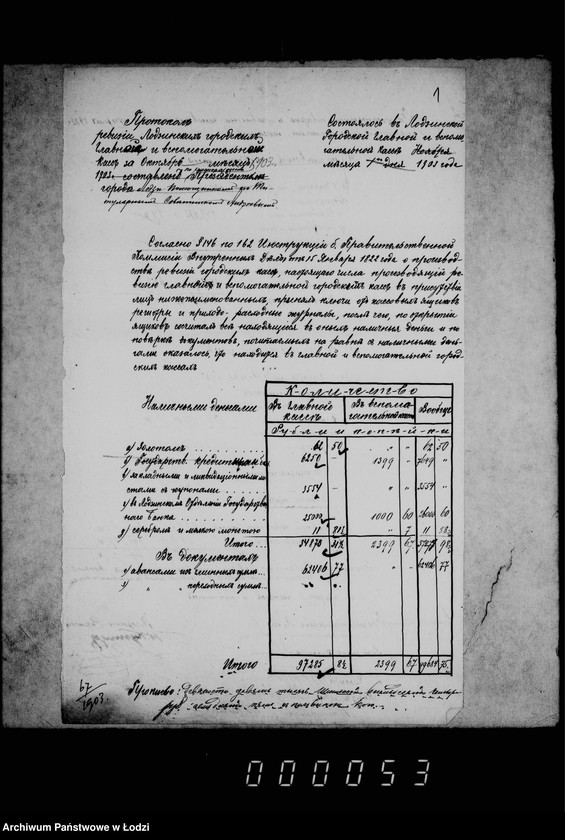 1
Протоколъ
ревизiи Лодзинскихъ городскихъ
главной и вспомогательной
кассъ за Октябрь мѣсяцъ 1903
1903 составленъ Президентомъ
города Лодзи
Состоялось въ Лодзинской
Городской Главной и вспомо
гательной кассѣ Ноября
мѣсяца 1го дня 1903 года
Согласно § 146 по 162 Инструкцiи б. Правительственной
Коммисiи Внутреннихъ Дѣлъ отъ 15 Января 1822 года о производ-
ствѣ ревизiи городскихъ кассъ, настоящаго числа производящiй ре-
визiю главной и вспомогательной городскихъ кассъ въ присутствiи
лицъ нижепоименованныхъ, принялъ ключи отъ кассовыхъ ящиковъ
регистры и приходо-расходные журналы, послѣ чего, по открытiи
ящиковъ сосчиталъ всѣ находящiяся въ оныхъ наличныя деньги и по
повѣркѣ документовъ, почитаемыхъ на равнѣ съ наличными день-
гами оказалось, что находится въ главной и вспомогательной город-
скихъ кассахъ
Количество
Наличными деньгами
Въ главной кассѣ
Въ вспомо-
гательной кассѣ
Вообще
Рубли и копѣйки
а) Золотомъ 62 50 " " 62 50
б) Государств. кредитными 6250 – 1399 " 7649 "
в) закладными и ликвидацiонными ли-
стами съ купонами 3554 – " " 3554 "
г) въ Лодзинскомъ Отдѣленiи Государствен-
наго Банка 1000 60 60
д) серебромъ и мѣдною монетою 11 " 7 11
Итого 34878 2399 67
Въ документахъ
а) авансами 62406 77 " " 62406 77
б) " переходныхъ суммъ
Итого 97285 2399 67
Прописью: Девяносто девять тысячъ шестьсотъ восемьдесятъ
руб. коп.
67/1903.
000053
Archiwum Państwowe w Łodzi